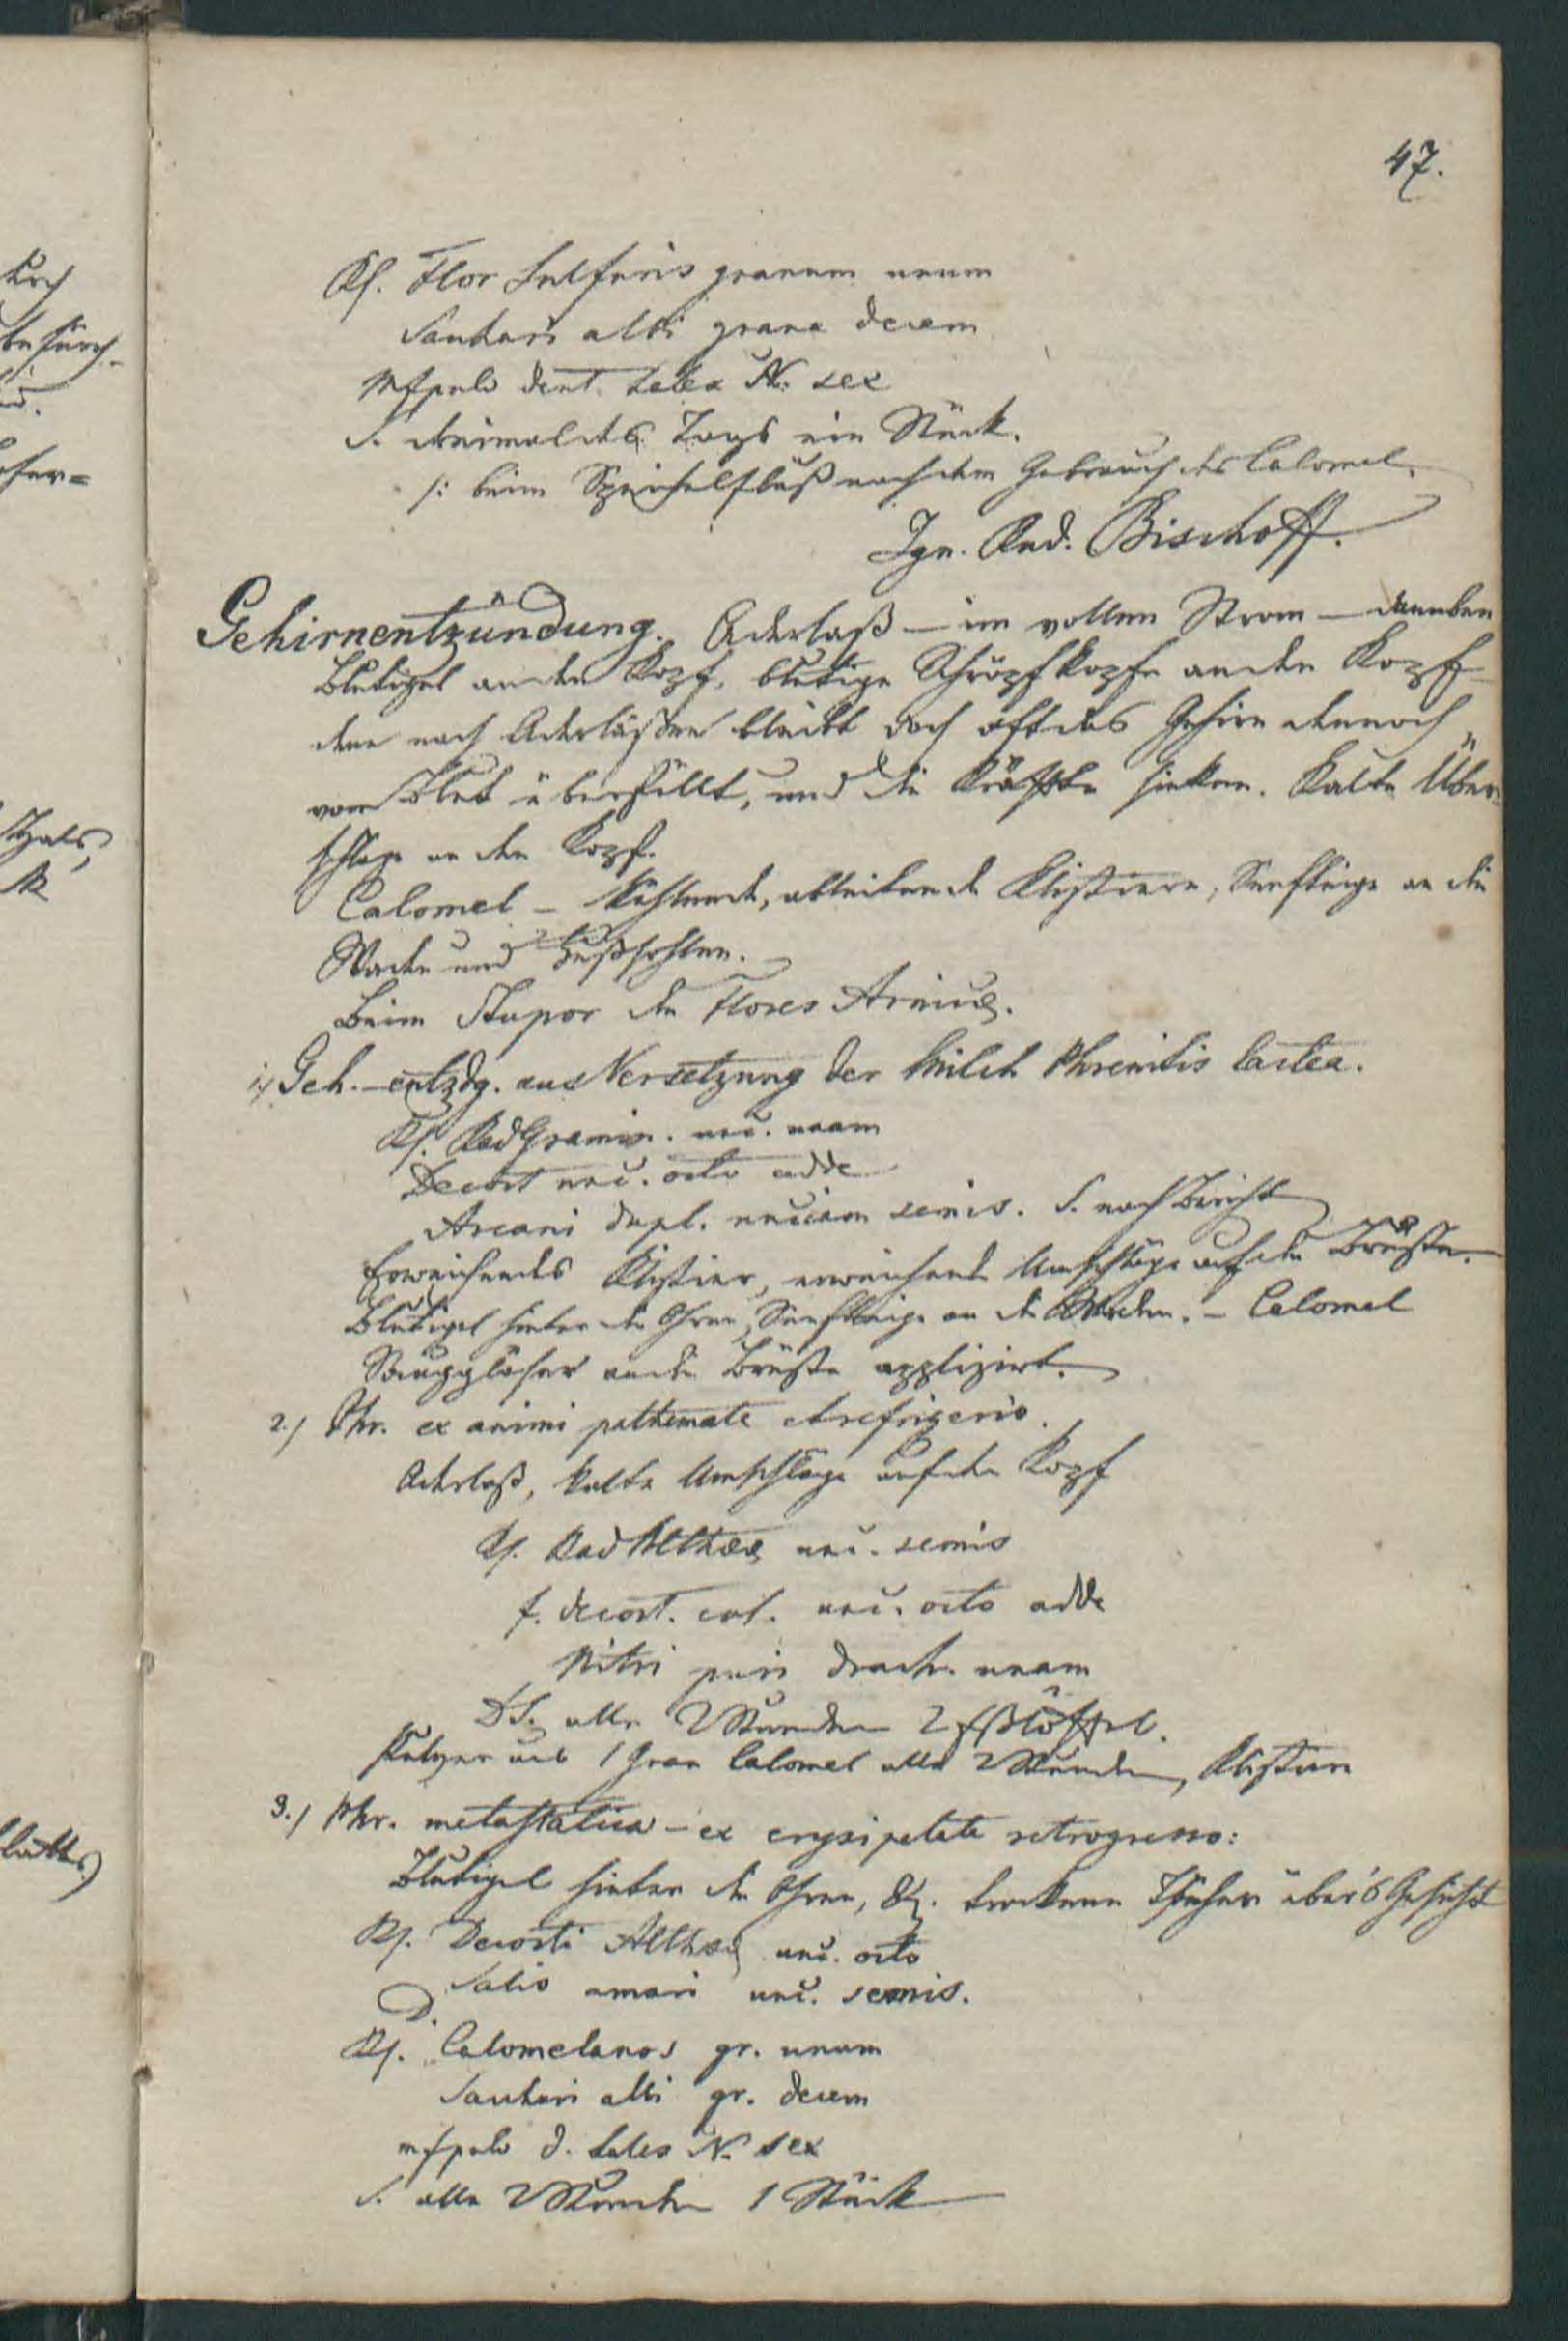 47.
Rp. Flor Sulfuris granum unum
Sachari albi grana decem
Mfpulv dent. tales N. sex
S. dreimal des Tags ein Stück.
/: beim Speichelfluß nach dem Gebrauch des Calomel.
Ign. Rud. Bischoff.
Gehirnentzündung. Aderlaß – im vollen Strom – daneben
Blutigel an den Kopf, blutige Schröpfkopfe an den Kopf
denn nach Aderläßen bleibt doch oft das Gehirn dennoch
vom Blut überfüllt, und die Kräfte sinken. Kalte Über-
schläge an den Kopf.
Calomel – kühlende, ableitende Klistiere, Senfteige an die
Waden und Fußsohlen.
Beim Stupor die Flores Arnicæ.
1/ Geh.-entzdg. aus Versetzung der Milch Phrenitis lactea.
Rp. Rad Gramin. unc. unam
Decoct unc. octo adde
Arcani dupl. unciam semis. S. nach Bericht
Erweichendes Klistier, erweichende Umschläge auf die Brüste.
Blutigel hinter die Ohren, Senfteige an die Waden. – Calomel
Sauggläser an die Brüste applizirt.
2./ Phr. ex animi pathemate et refrigerio.
Aderlaß, kalte Umschläge auf den Kopf
Rp. Rad Altheæ unc. semis
f. decoct. col. unc. octo adde
Nitri puri drach. unam
DS. alle 2 Stunden 2 Eßlöffel.
Pulver aus 1 Gran Calomel alle 2 Stunden, Klistiere
3./ Phr. metastatica – ex erysipelate retrogresso:
Blutigel hinter die Ohren, &. trockene Tücher über's Gesicht
Rp. Decocti Altheæ unc. octo
Salis amari unc. semis.
D.
Rp. Calomelanos gr. unum
Sachari albi gr. decem
mfpulv d. tales N. sex
S. alle 2 Stunden 1 Stück